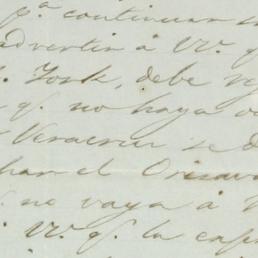 pª continuar
advertir á Vv. q.
York, debe
q. no haya
Veracruz se
el Orizava
no vaya á
Vv. q. la